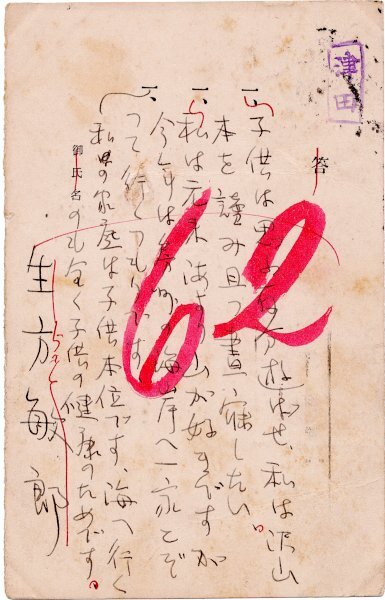 津田
答
一、子供は思ふ存分遊ばせ、私は沢山
本を読み且つ書い寝したい
一、私は元来海より山が好きですが
今年は
海岸へ一家こぞ
つて行くつもりです
一、私の家庭は子供本位です、海へ行く
のも全く子供の健康のためです。
御氏名
生方敏郎
62